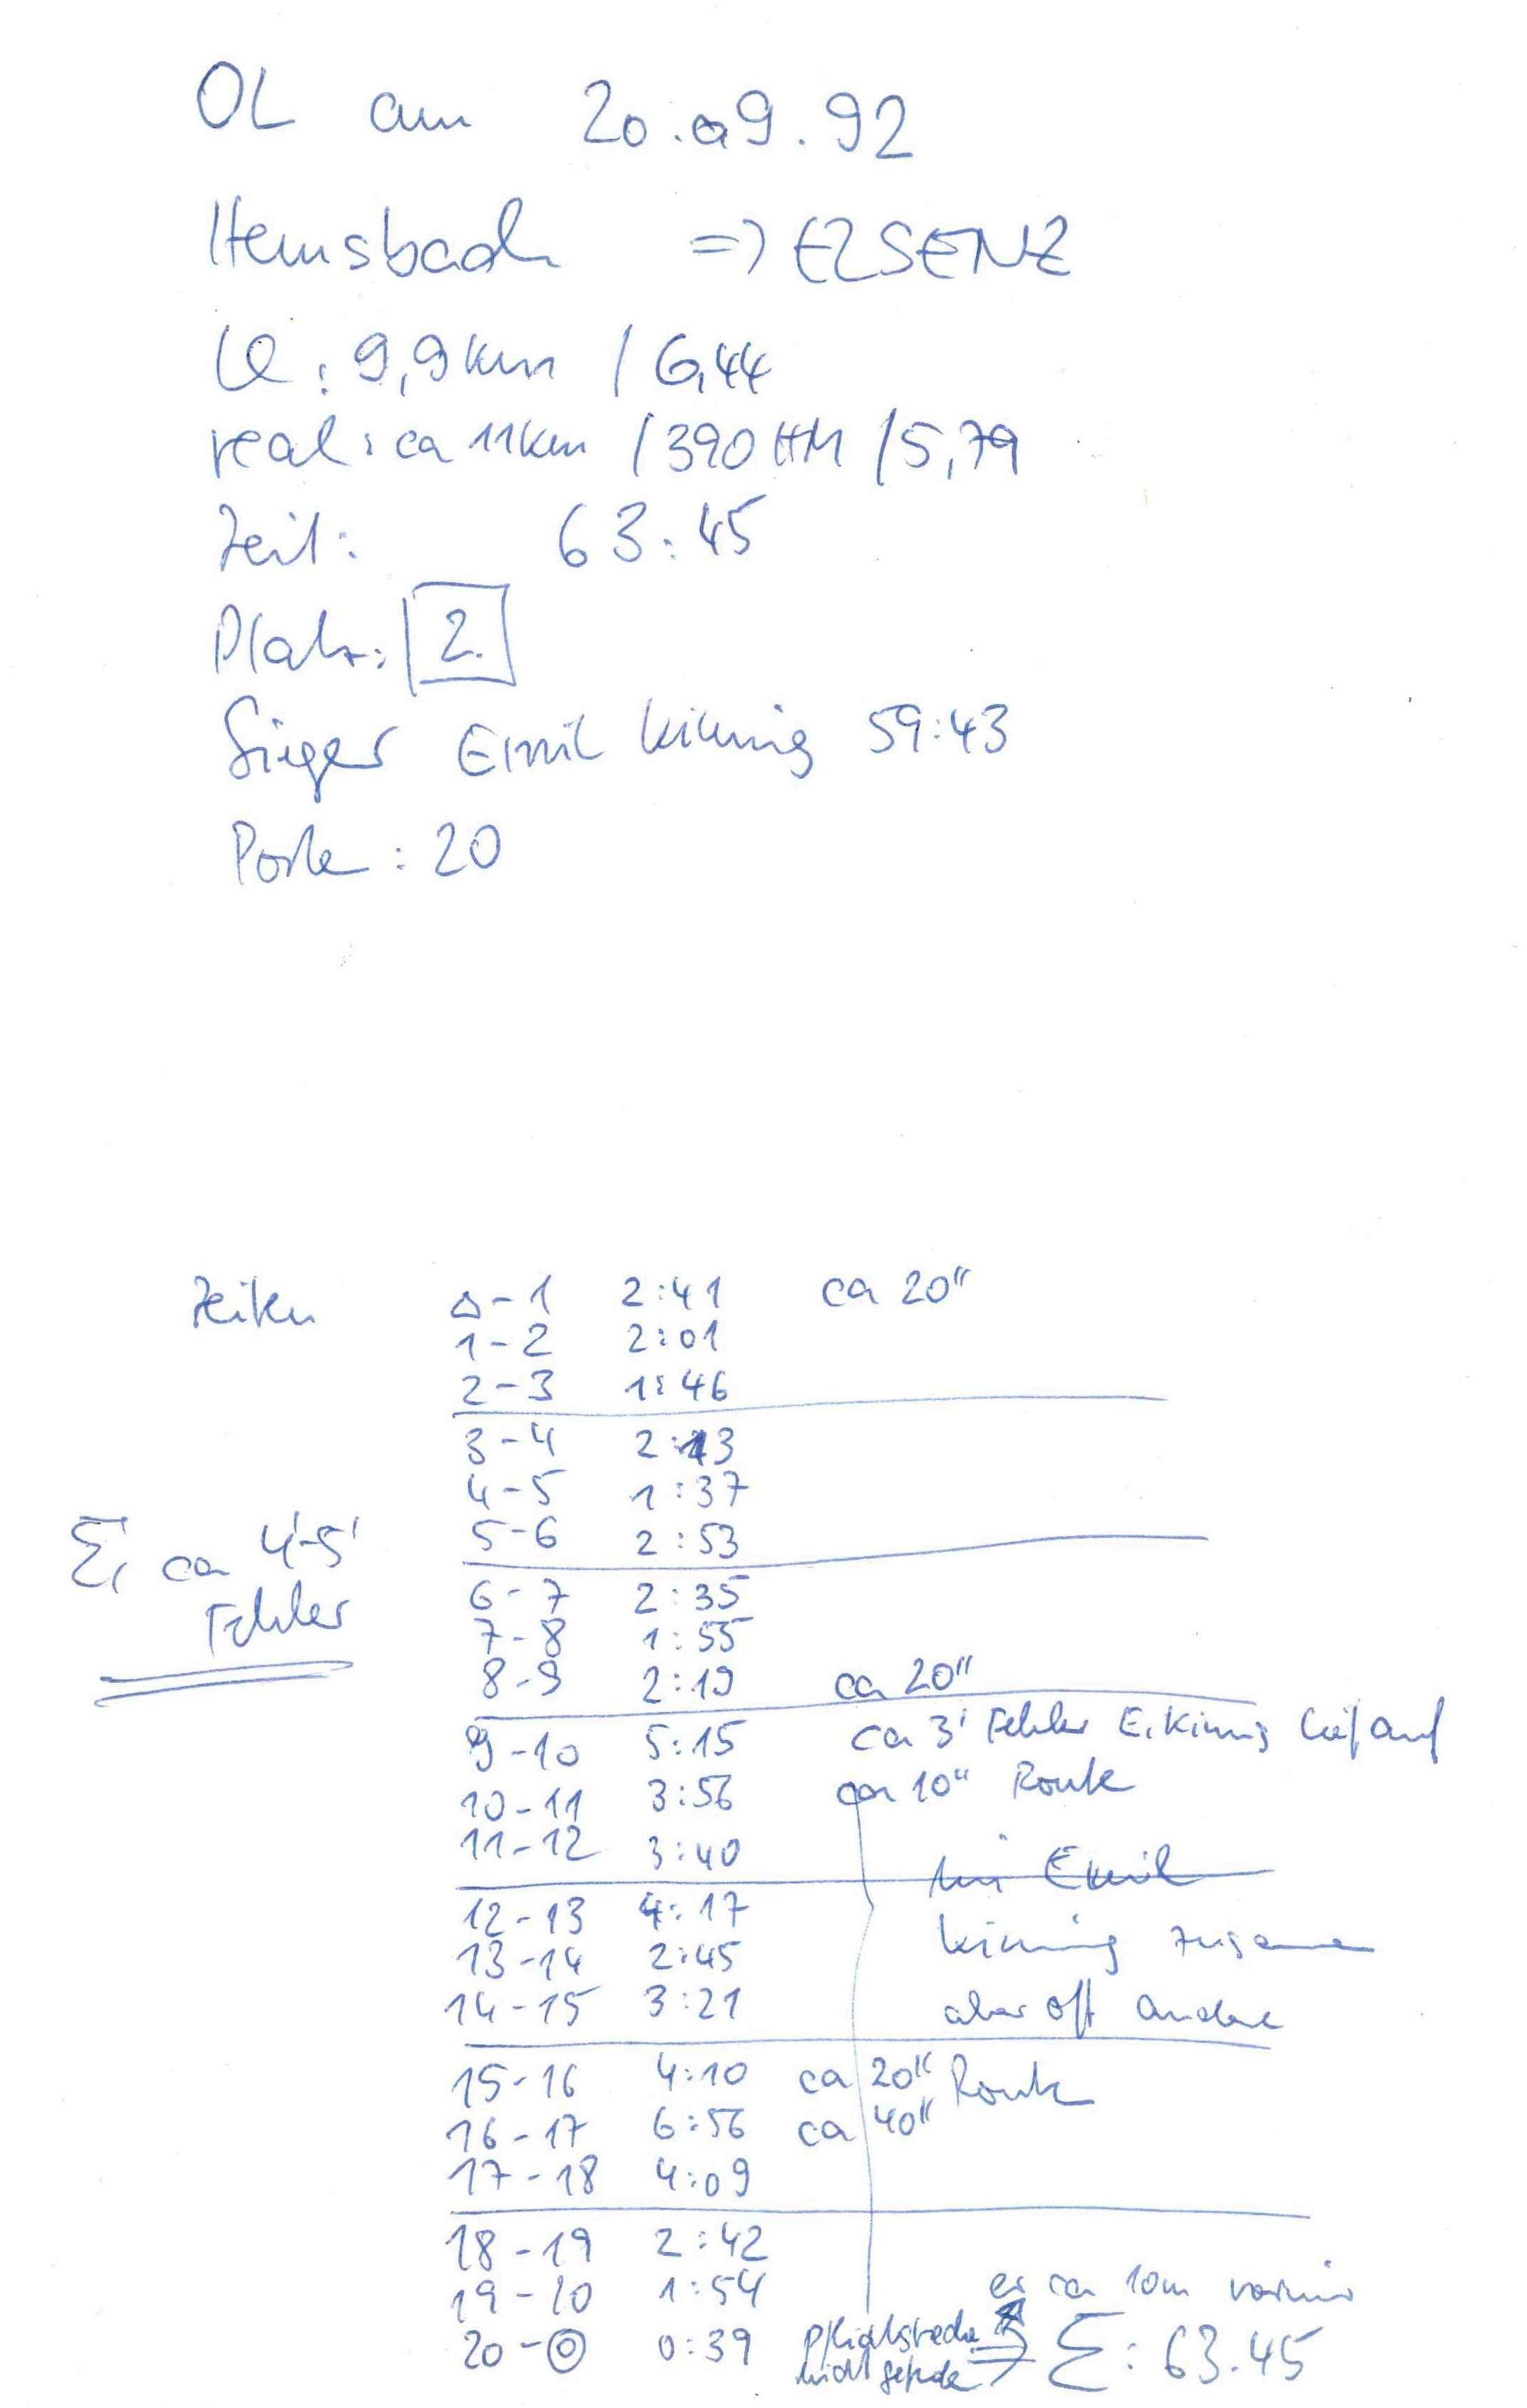 OL am 20.09.92
Hemsbach => ELSENZ
9,9 km / 6,44
real: ca 11 km / 390 HM / 5,79
Zeit: 63:45
Platz: 2.
Sieger Emil Kiming 59:43
Posten: 20
Zeiten △-1 2:41 ca 20"
1-2 2:01
2-3 1:46
3-4 2:13
4-5 1:37
5-6 2:53
Σ, ca 4'-5'
Fehler
6-7 2:35
7-8 1:55
8-9 2:19 ca 20"
9-10 5:15 ca 3' Fehler E. Kiming lief auf
10-11 3:56 ca 10" Route
11-12 3:40 mit Emil
12-13 4:17
13-14 2:45 Kiming zusammen
14-15 3:21 aber oft andere
15-16 4:10 ca 20" Route
16-17 6:56 ca 40"
17-18 4:09
18-19 2:42
19-20 1:54 er ca 10m vor mir
20-◎ 0:39 Pflichtstrecke => Σ: 63.45
nicht